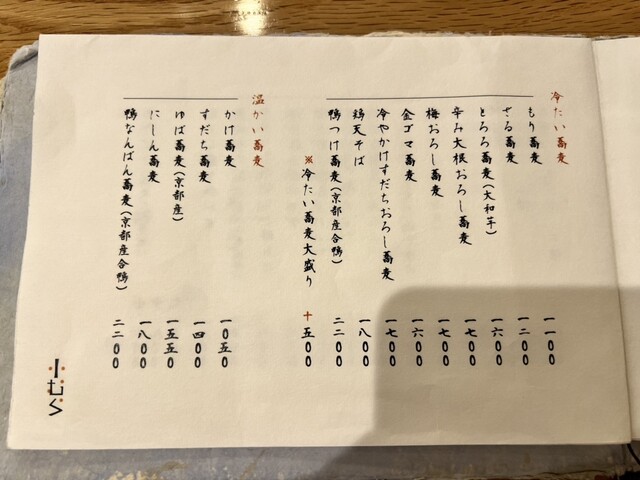 冷たい蕎麦
もり蕎麦 一一〇〇
ざる蕎麦 一二〇〇
とろろ蕎麦(大和芋) 一六〇〇
辛み大根おろし蕎麦 一七〇〇
梅おろし蕎麦 一七〇〇
金ゴマ蕎麦 一六〇〇
冷やかけすだちおろし蕎麦 一七〇〇
鶏天そば 一八〇〇
鴨つけ蕎麦(京都産合鴨) 二二〇〇
※冷たい蕎麦大盛り +五〇〇
温かい蕎麦
かけ蕎麦 一〇五〇
すだち蕎麦 一四〇〇
ゆば蕎麦(京都産) 一五五〇
にしん蕎麦 一八〇〇
鴨なんばん蕎麦(京都産合鴨) 二二〇〇
じむら